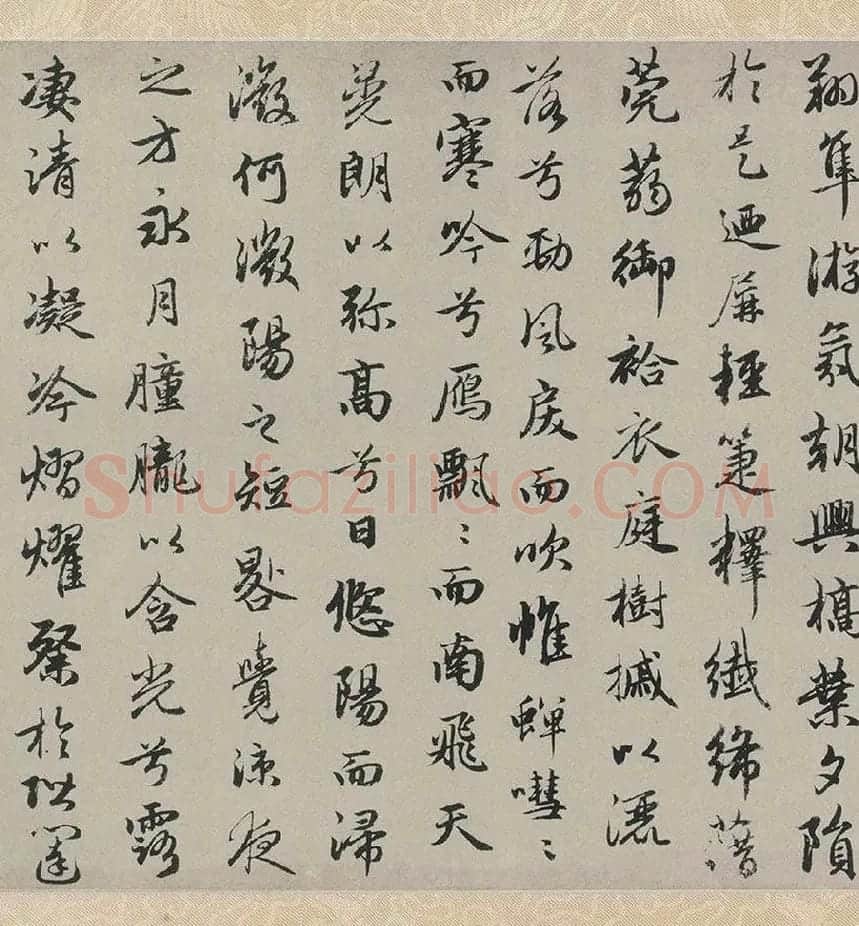 翔隼游氛朝興槁葉夕隕
於是迺屏輕箑釋纖絺藉
莞蒻御袷衣庭樹摵以灑
落兮勁風戾而吹帷蟬嘒〻
而寒吟兮鴈飄〻而南飛天
晃朗以弥高兮日悠陽而浸
微何微陽之短晷覺涼夜
之方永月朣朧以含光兮露
凄清以凝冷熠燿粲於階闥
shufaziliao.COM